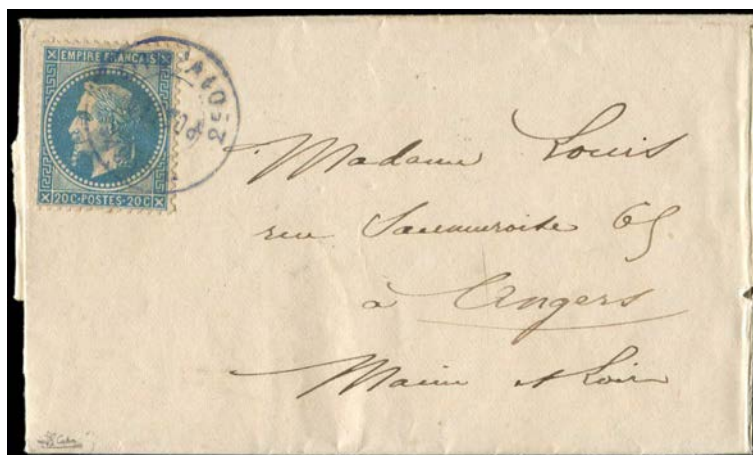 EMPIRE FRANÇAIS
20C·POSTES·20C
Madame Louis
rue Saumuroise 65
à Angers
Maine et Loire